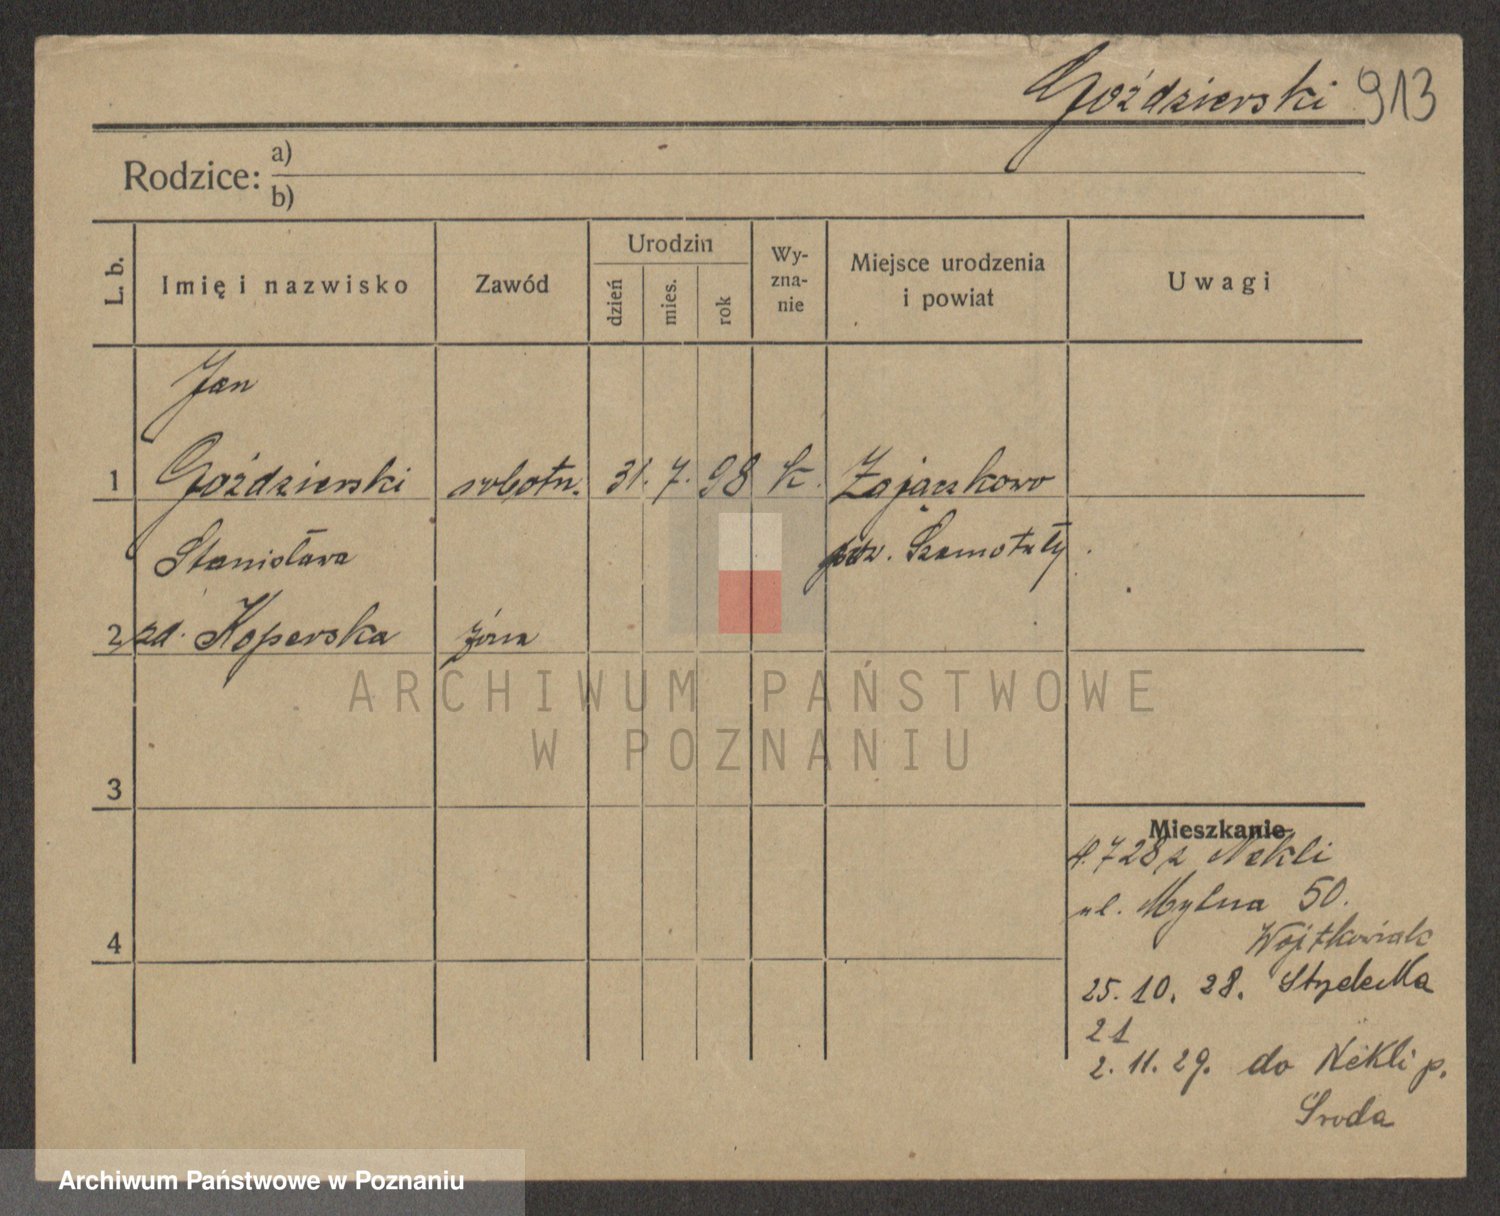 Goździerski 913
Rodzice: a)
b)
L. b.
Imię i nazwisko
Zawód
Urodzin
dzień
mies.
rok
Wy-
zna-
nie
Miejsce urodzenia
i powiat
Uwagi
Jan
1 Goździerski robotn. 31. 7. 98 k. Zajączkowo
Stanisława pow. Szamotuły
2 zd. Koperska żona
3
4
Mieszkanie
4.7 28 z Nekli
ul. Mylna 50.
Wojtkowiak
25. 10. 28.
21
2. 11. 29. do Nekli p.
Środa
ARCHIWUM PAŃSTWOWE
W POZNANIU
Archiwum Państwowe w Poznaniu